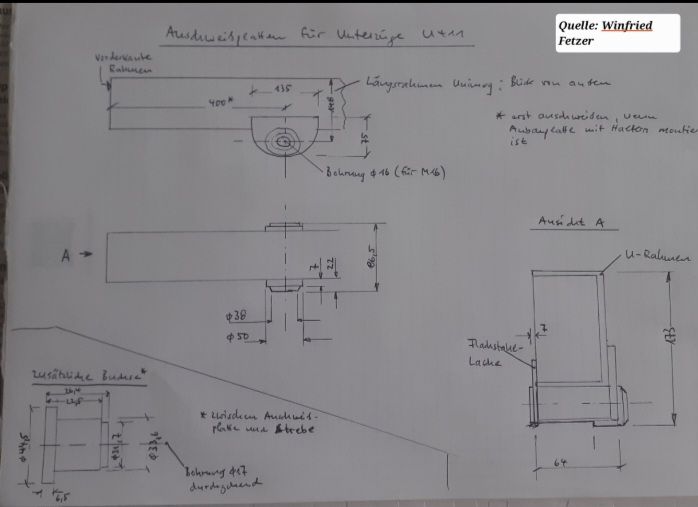 Quelle: Winfried
Fetzer
Anschweißplatten für Unterzüge U411
Vorderkante
Rahmen
Längsrahmen Unimog: Blick von außen
135
400*
148
75
* erst anschweißen, wenn
Anbauplatte mit Haltern montiert
ist
Bohrung Φ16 (für M16)
A
7
22
86,5
Φ38
Φ50
Ansicht A
U-Rahmen
7
173
Flachstahl-
Lasche
64
zusätzliche Buchse*
22,5
Φ44,5
Φ33,6
6,5
* zwischen Anschweiß-
platte und Strebe
Bohrung Φ17
durchgehend